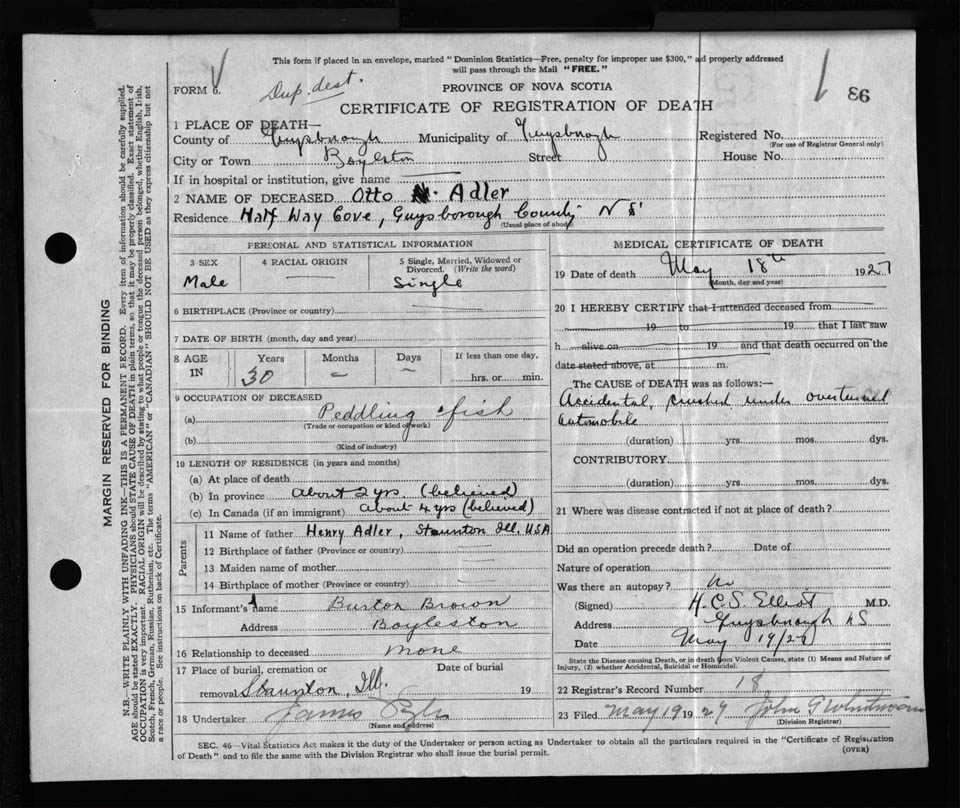 This form if placed in an envelope, marked "Dominion Statistics—Free, penalty for improper use $300," and properly addressed
will pass through the Mail "FREE."
FORM 6.
Dup. dest.
PROVINCE OF NOVA SCOTIA
86
CERTIFICATE OF REGISTRATION OF DEATH
1 PLACE OF DEATH—
County of Guysborough Municipality of Guysborough Registered No.
(For use of Registrar General only)
City or Town Boylston Street House No.
If in hospital or institution, give name
2 NAME OF DECEASED Otto Adler
Residence Half Way Cove, Guysborough County N S
(Usual place of abode)
PERSONAL AND STATISTICAL INFORMATION
3 SEX 4 RACIAL ORIGIN 5 Single, Married, Widowed or Divorced. (Write the word)
Male — Single
6 BIRTHPLACE (Province or country)
7 DATE OF BIRTH (month, day and year)
8 AGE IN Years Months Days If less than one day,
30 – – hrs. or min.
9 OCCUPATION OF DECEASED
(a) Peddling fish
(Trade or occupation or kind of work)
(b)
(Kind of industry)
10 LENGTH OF RESIDENCE (in years and months)
(a) At place of death
(b) In province about 2 yrs (believed)
(c) In Canada (if an immigrant) about 4 yrs (believed)
Parents
11 Name of father Henry Adler, Staunton Ill. USA
12 Birthplace of father (Province or country)
13 Maiden name of mother
14 Birthplace of mother (Province or country)
15 Informant's Name Burton Brown
Address Boyleston
16 Relationship to deceased none
17 Place of burial, cremation or Date of burial
removal Staunton, Ill. 19
18 Undertaker James
(Name and address)
MEDICAL CERTIFICATE OF DEATH
19 Date of death May 18th 1927
(Month, day and year)
20 I HEREBY CERTIFY that I attended deceased from
19 to 19 that I last saw
h alive on 19 and that death occurred on the
date stated above, at m.
The CAUSE OF DEATH was as follows:—
Accidental, crushed under overturned
automobile
(duration) yrs. mos. dys.
CONTRIBUTORY
(duration) yrs. mos. dys.
21 Where was disease contracted if not at place of death?
Did an operation precede death? Date of
Nature of operation
Was there an autopsy? no
(Signed) H.C.S. Elliot M.D.
Address Guysborough NS
Date May 19/27
State the Disease causing Death, or in death from Violent Causes, state (1) Means and Nature of
Injury, (2) whether Accidental, Suicidal or Homicidal.
22 Registrar's Record Number 18
23 Filed May 19 1927 John G
(Division Registrar)
SEC. 46—Vital Statistics Act makes it the duty of the Undertaker or person acting as Undertaker to obtain all the particulars required in the "Certificate of Registration
of Death" and to file the same with the Division Registrar who shall issue the burial permit. (OVER)
MARGIN RESERVED FOR BINDING
N.B.—WRITE PLAINLY WITH UNFADING INK—THIS IS A PERMANENT RECORD. Every item of information should be carefully supplied.
AGE should be stated EXACTLY. PHYSICIANS should STATE CAUSE OF DEATH in plain terms, so that it may be properly classified. Exact statement of
OCCUPATION is very important. RACIAL ORIGIN will be described by stating to what people or tongue the deceased person belonged, whether English, Irish,
Scotch, French, German, Russian, Ruthenian, etc. The terms "AMERICAN" or "CANADIAN" SHOULD NOT BE USED as they express citizenship but not
a race or people. See instructions on back of Certificate.